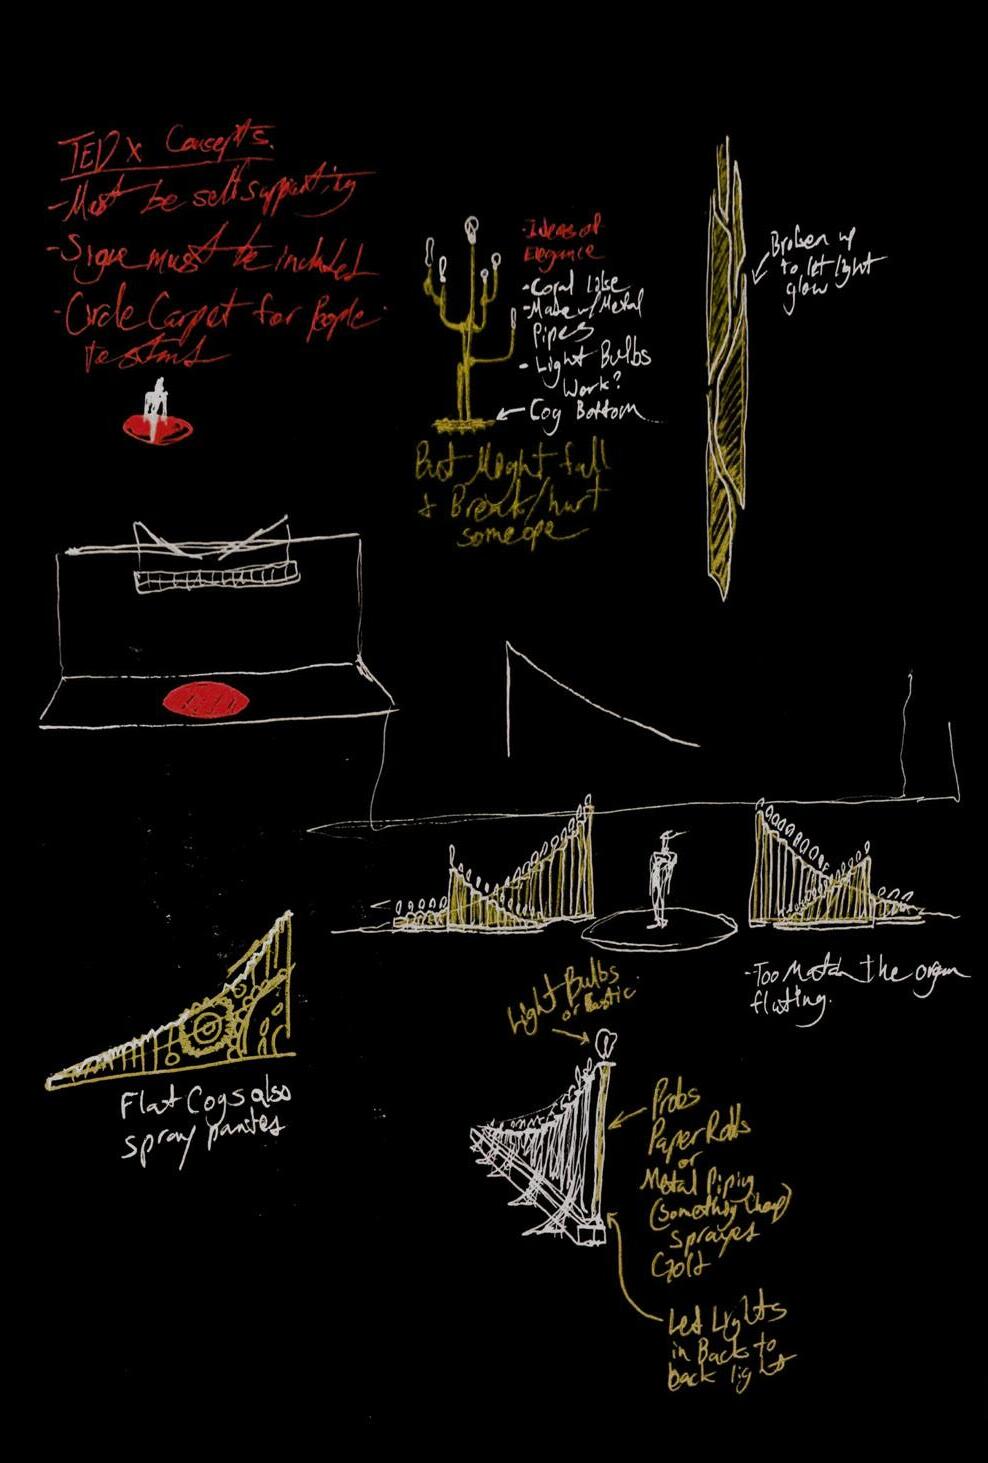 TEDx Concepts.
- Must be self supporting
- Signe must be included
- Circle Carpet for People
to stand
- Ideas of
Elegance
- Coral like
- Made w/ Metal
Pipes
- Light Bulbs
Work?
Cog Bottom
But Might fall
& Break/hurt
someone
Broken up
to let light
glow
- Too Match the organ
fluting.
Light Bulbs
or Plastic
Flat Cogs also
spray
Probs
Paper Rolls
or
Metal Piping
(Something Cheap)
Gold
Led Lights
in Back to
back light